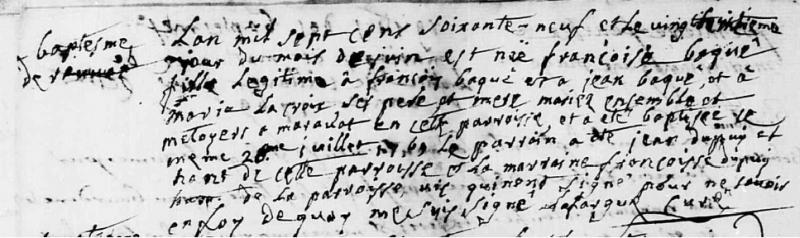 baptesme
de
Lan mil sept cens soixante-neuf et le vingt
jour du mois de juin est née françoise baqué
fille legitime à françois baqué et a jean baqué, et à
maria Lacroix ses pere et mere mariez ensemble et
metoyers a maraDat en cette parroisse, et a été baptisée le
meme 20me juillet 1769 Le parrain a été jean dupuy et
hant de cette parroisse et La marraine françoisse dupuy
hant de La parroisse qui n'ont signé pour ne savoir
en foy de quoy me suis signé Lafargue Curé